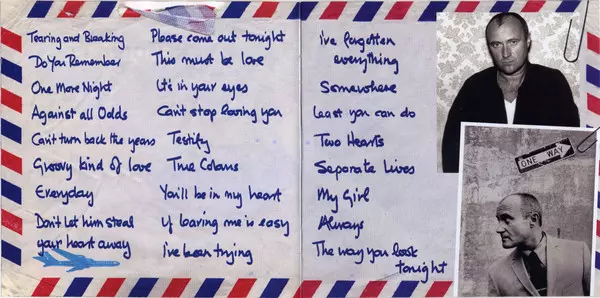 Tearing and Breaking
Do You Remember
One More Night
Against all Odds
Can't turn back the years
Groovy kind of love
Everyday
Don't let him steal
your heart away
Please come out tonight
This must be love
It's in your eyes
Can't stop loving you
Testify
True Colours
You'll be in my heart
If leaving me is easy
I've been trying
I've forgotten
everything
Somewhere
Least you can do
Two Hearts
Separate Lives
My Girl
Always
The way you look
tonight
ONE WAY